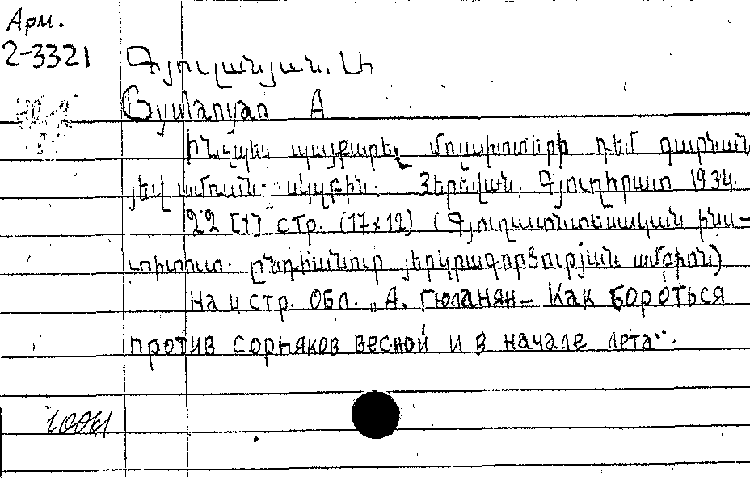 Арм.
2-3321
Գյուլանյան. Ա
Gyulanyan A
Ինչպես պայքարել մոլախոտերի դեմ գարնան
յեվ ամռան սկզբին. Յերևան, Գյուղհրատ 1934.
22 [1] стр. (17x12) (Գյուղատնտեսական ինս-
տիտուտ. ընդհանուր յերկրագործության ամբիոն)
На и стр. Обл. „А. Гюланян – Как бороться
против сорняков весной и в начале лета".